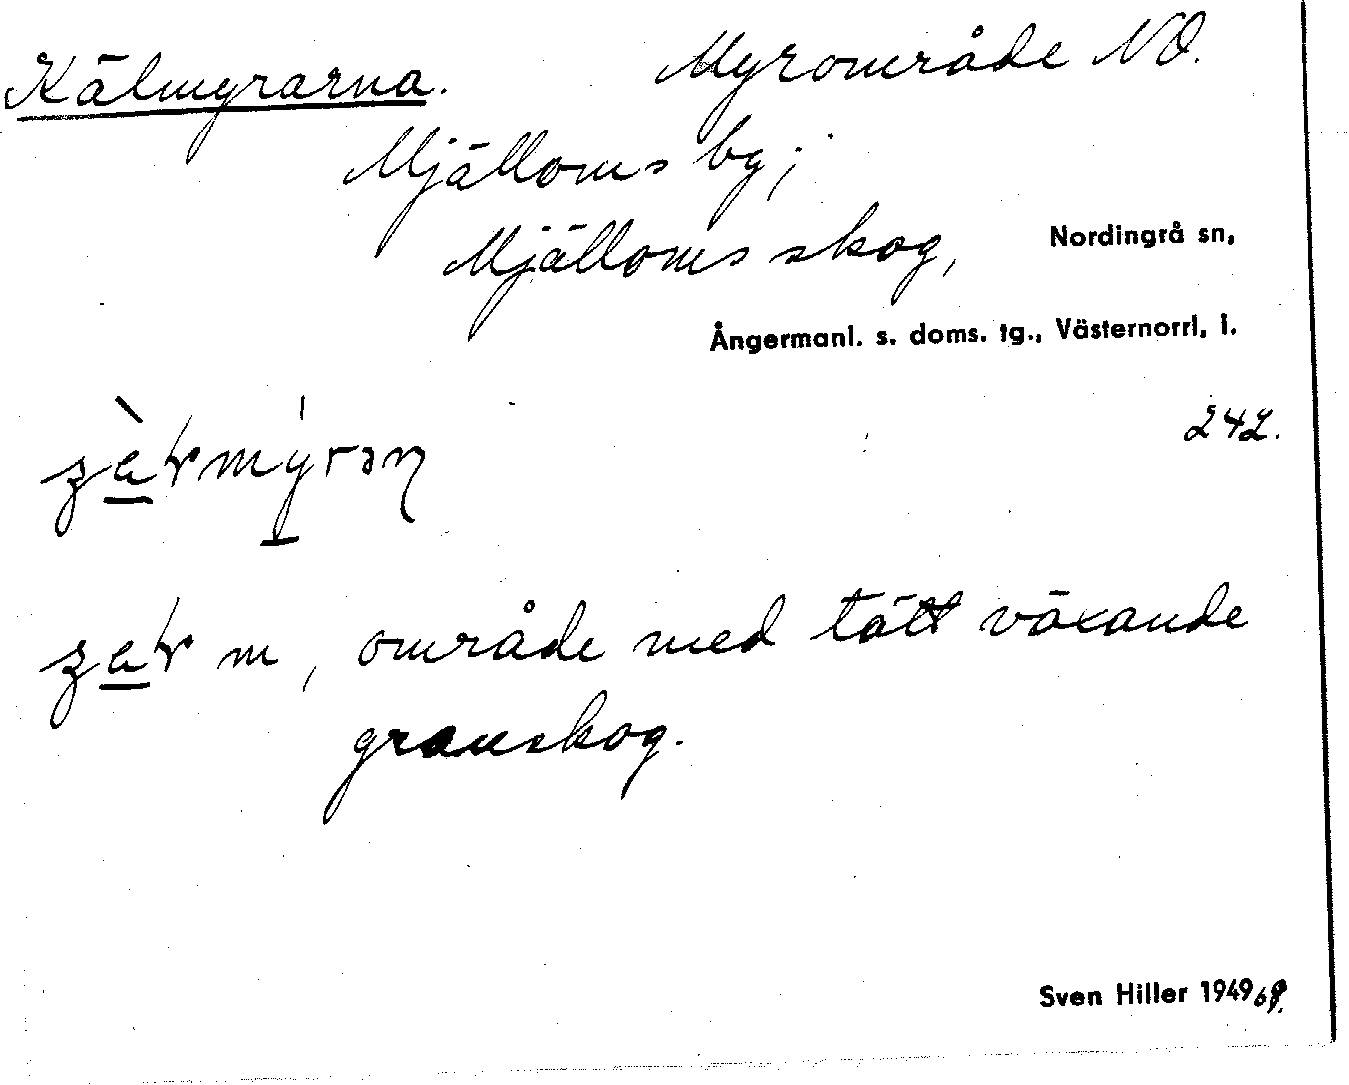 Kälmyrarna. Myrområde NO.
Mjälloms by;
Mjälloms skog, Nordingrå sn,
Ångermanl. s. doms. tg., Västernorrl. l.
242.
m, område med tätt växande
granskog.
Sven Hiller 1949